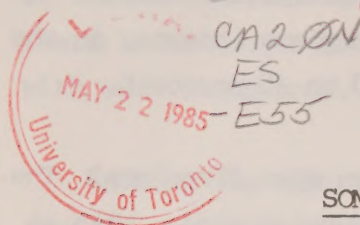 CA2ØN
ES
-E55
MAY 22 1985
University of Toronto